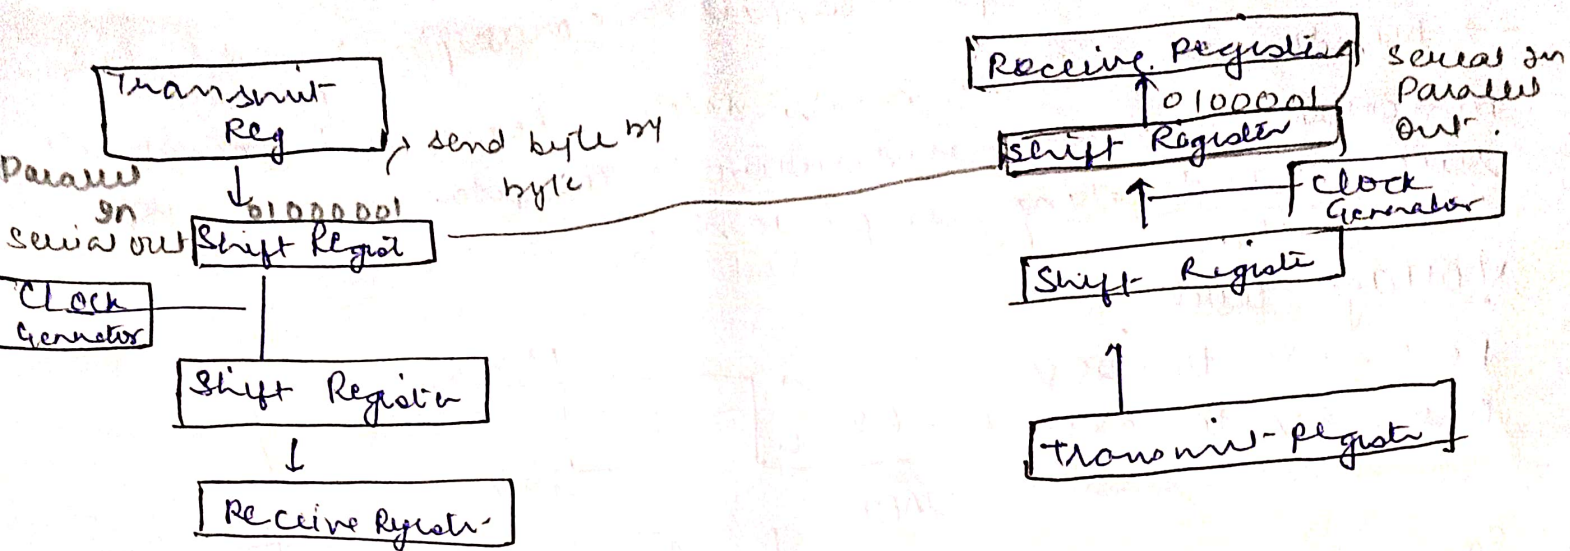 Transmit
Reg
send byte by
byte
Parallel
In
serial out
01000001
Shift Regist
Clock
Generator
Shift Register
Receive Register
Receive Register
Serial In
Parallel
Out.
0100001
Shift Register
Clock
Generator
Shift Register
Transmit Register